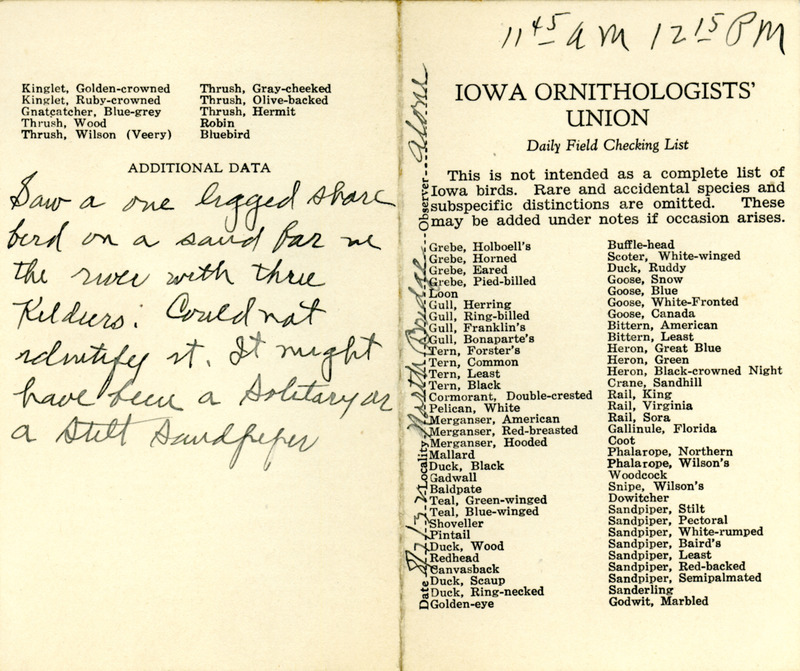 Kinglet, Golden-crowned
Kinglet, Ruby-crowned
Gnatcatcher, Blue-grey
Thrush, Wood
Thrush, Wilson (Veery)
Thrush, Gray-cheeked
Thrush, Olive-backed
Thrush, Hermit
Robin
Bluebird
ADDITIONAL DATA
Saw a one legged shore
bird on a sand bar in
the river with three
Kildeers. Could not
identify it. It might
have been a Solitary or
a Stilt Sandpiper
11 45 AM 12 15 PM
IOWA ORNITHOLOGISTS'
UNION
Daily Field Checking List
This is not intended as a complete list of
Iowa birds. Rare and accidental species and
subspecific distinctions are omitted. These
may be added under notes if occasion arises.
Date 8/21/32 Locality North Bridge Observer Alone
Grebe, Holboell's
Grebe, Horned
Grebe, Eared
Grebe, Pied-billed
Loon
Gull, Herring
Gull, Ring-billed
Gull, Franklin's
Gull, Bonaparte's
Tern, Forster's
Tern, Common
Tern, Least
Tern, Black
Cormorant, Double-crested
Pelican, White
Merganser, American
Merganser, Red-breasted
Merganser, Hooded
Mallard
Duck, Black
Gadwall
Baldpate
Teal, Green-winged
Teal, Blue-winged
Shoveller
Pintail
Duck, Wood
Redhead
Canvasback
Duck, Scaup
Duck, Ring-necked
Golden-eye
Buffle-head
Scoter, White-winged
Duck, Ruddy
Goose, Snow
Goose, Blue
Goose, White-Fronted
Goose, Canada
Bittern, American
Bittern, Least
Heron, Great Blue
Heron, Green
Heron, Black-crowned Night
Crane, Sandhill
Rail, King
Rail, Virginia
Rail, Sora
Gallinule, Florida
Coot
Phalarope, Northern
Phalarope, Wilson's
Woodcock
Snipe, Wilson's
Dowitcher
Sandpiper, Stilt
Sandpiper, Pectoral
Sandpiper, White-rumped
Sandpiper, Baird's
Sandpiper, Least
Sandpiper, Red-backed
Sandpiper, Semipalmated
Sanderling
Godwit, Marbled